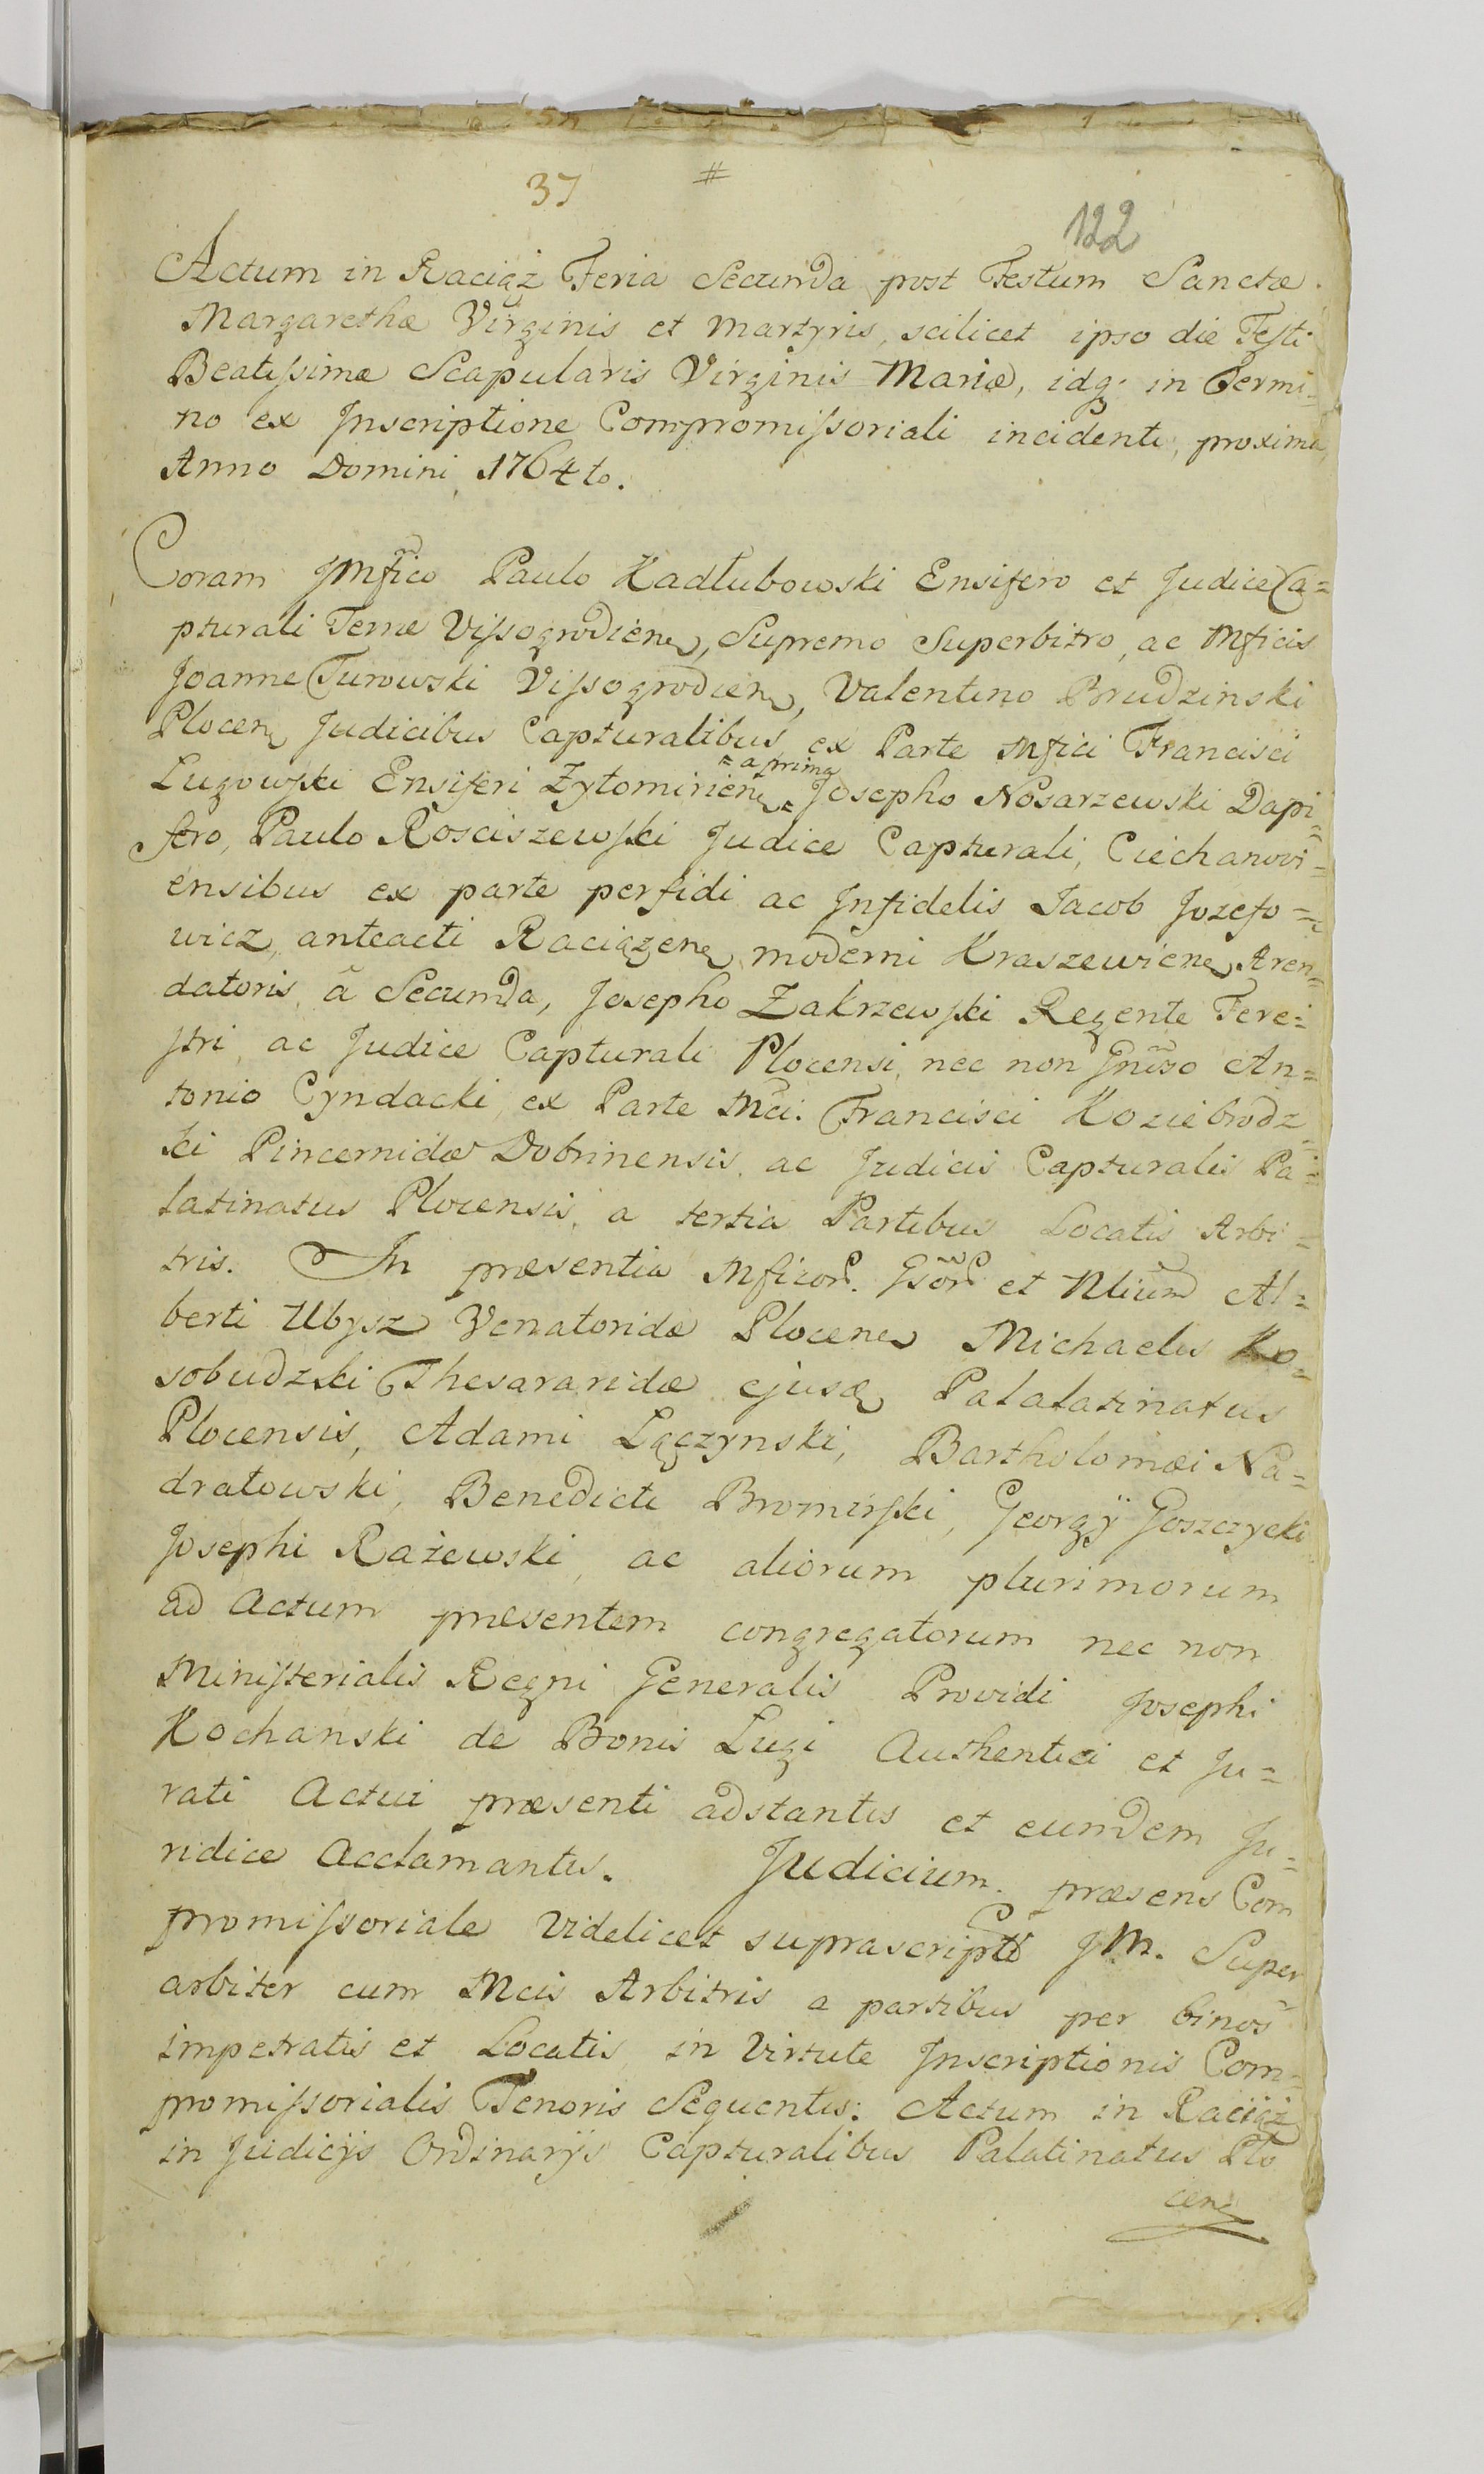 37 #
122
Actum in Raciąz Feria Secunda post Festum Sanctæ
Margarethæ Virginis et Martyris, scilicet ipso die Festi
Beatissimæ Scapularis Virginis Mariæ, idq; in Termi=
no ex Inscriptione Compromissoriali incidenti, proxime
Anno Domini 1764to.
Coram JMfico Paulo Kadłubowski Ensifero et Judice Ca=
pturali Terræ Vissogrodien, Supremo Superbitro, ac Mficis
Joanne Turowski Vissogrodien, Valentino Brudzinski
Plocen Judicibus Capturalibus ex Parte Mfici Francisci
= a prima
Lugowski Ensiferi Zytomirien = Josepho Nosarzewski Dapi=
fero, Paulo Rosciszewski Judice Capturali, Ciechanovi=
ensibus ex parte perfidi ac Infidelis Jacob Jozefo=
wicz, anteacti Raciązen moderni Kraszewien Aren=
datoris, â Secunda, Josepho Zakrzewski Regente Fere=
stri, ac Judice Capturali Plocensi, nec non Gnrso An=
tonio Cyndacki ex Parte Mci: Francisci Koziebrodz=
ki Pincernidæ Dobrinensis, ac Judicis Capturalis Pa=
latinatus Plocensis, a tertia Partibus Locatis Arbi=
tris. In præsentia Mficor. Gsor et Nlium Al=
berti Ubysz Venatoridæ Plocen Michaelis Ko=
sobudzki Thesararidæ ejusq Palalatinatus
Plocensis, Adami Łączynski, Bartholomæi Na=
dratowski, Benedicti Bromirski, Georgÿ Goszczycki
Josephi Rażewski, ac aliorum plurimorum
ad Actum præsentem congregatorum nec non
Ministerialis Regni Generalis Providi Josephi
Kochanski de Bonis Lugi Authentici et Ju=
rati Actui præsenti adstantis et eundem Ju=
ridice Acclamantis. Judicium præsens Com
promissoriale videlicet suprascripti JM. Super
arbiter cum Mcis Arbitris a partibus per binos
impetratis et Locatis, in Virtute Inscriptionis Com=
promissorialis Tenoris Sequentis: Actum in Raciąz
in Judicijs Ordinarijs Capturalibus Palatinatus Plo
cen